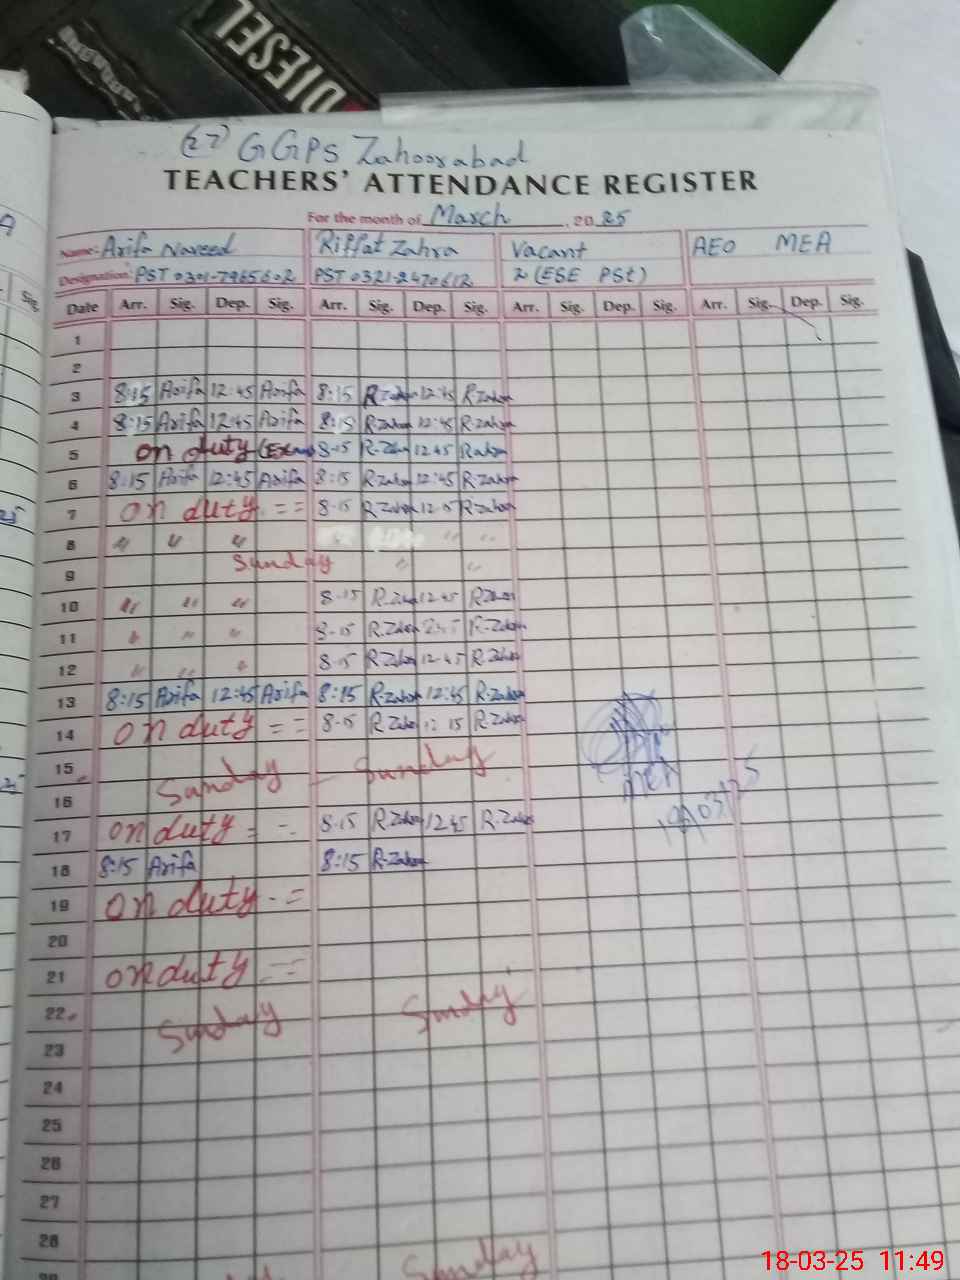 DIESEL
(27) GGPS Zahoorabad
TEACHERS' ATTENDANCE REGISTER
For the month of March, 2025
Name: Arifa Naveed Riffat Zahra Vacant AEO MEA
Designation: PST 0301-7965602 PST 0321-2470612 2 (ESE PSt)
Date Arr. Sig. Dep. Sig. Arr. Sig. Dep. Sig. Arr. Sig. Dep. Sig. Arr. Sig. Dep. Sig.
1
2
3 8:15 Arifa 12:45 Arifa 8:15 R-Zahra 12:45 R-Zahra
4 8:15 Arifa 12:45 Arifa 8:15 R-Zahra 12:45 R-Zahra
5 on duty 8-15 R-Zahra 12 45 R-Zahra
6 8:15 Arifa 12:45 Arifa 8:15 R-Zahra 12:45 R-Zahra
7 on duty == 8-15 R-Zahra 12-15 R-Zahra
8 " " " " "
9 Sunday " "
10 " " " 8-15 R-Zahra 12 45 R-Zahra
11 " " " 8-15 R-Zahra R-Zahra
12 " " " 8-15 R-Zahra 12-45 R-Zahra
13 8:15 Arifa 12:45 Arifa 8:15 R-Zahra 12:45 R-Zahra
14 on duty == 8-15 R-Zahra 12 15 R-Zahra
15 Sunday Sunday
16
17 on duty == 8-15 R-Zahra 12 45 R-Zahra
18 8:15 Arifa 8:15 R-Zahra
19 on duty -=
20
21 on duty ==
22 Sunday Sunday
23
24
25
26
27
28
Sunday
18-03-25 11:49